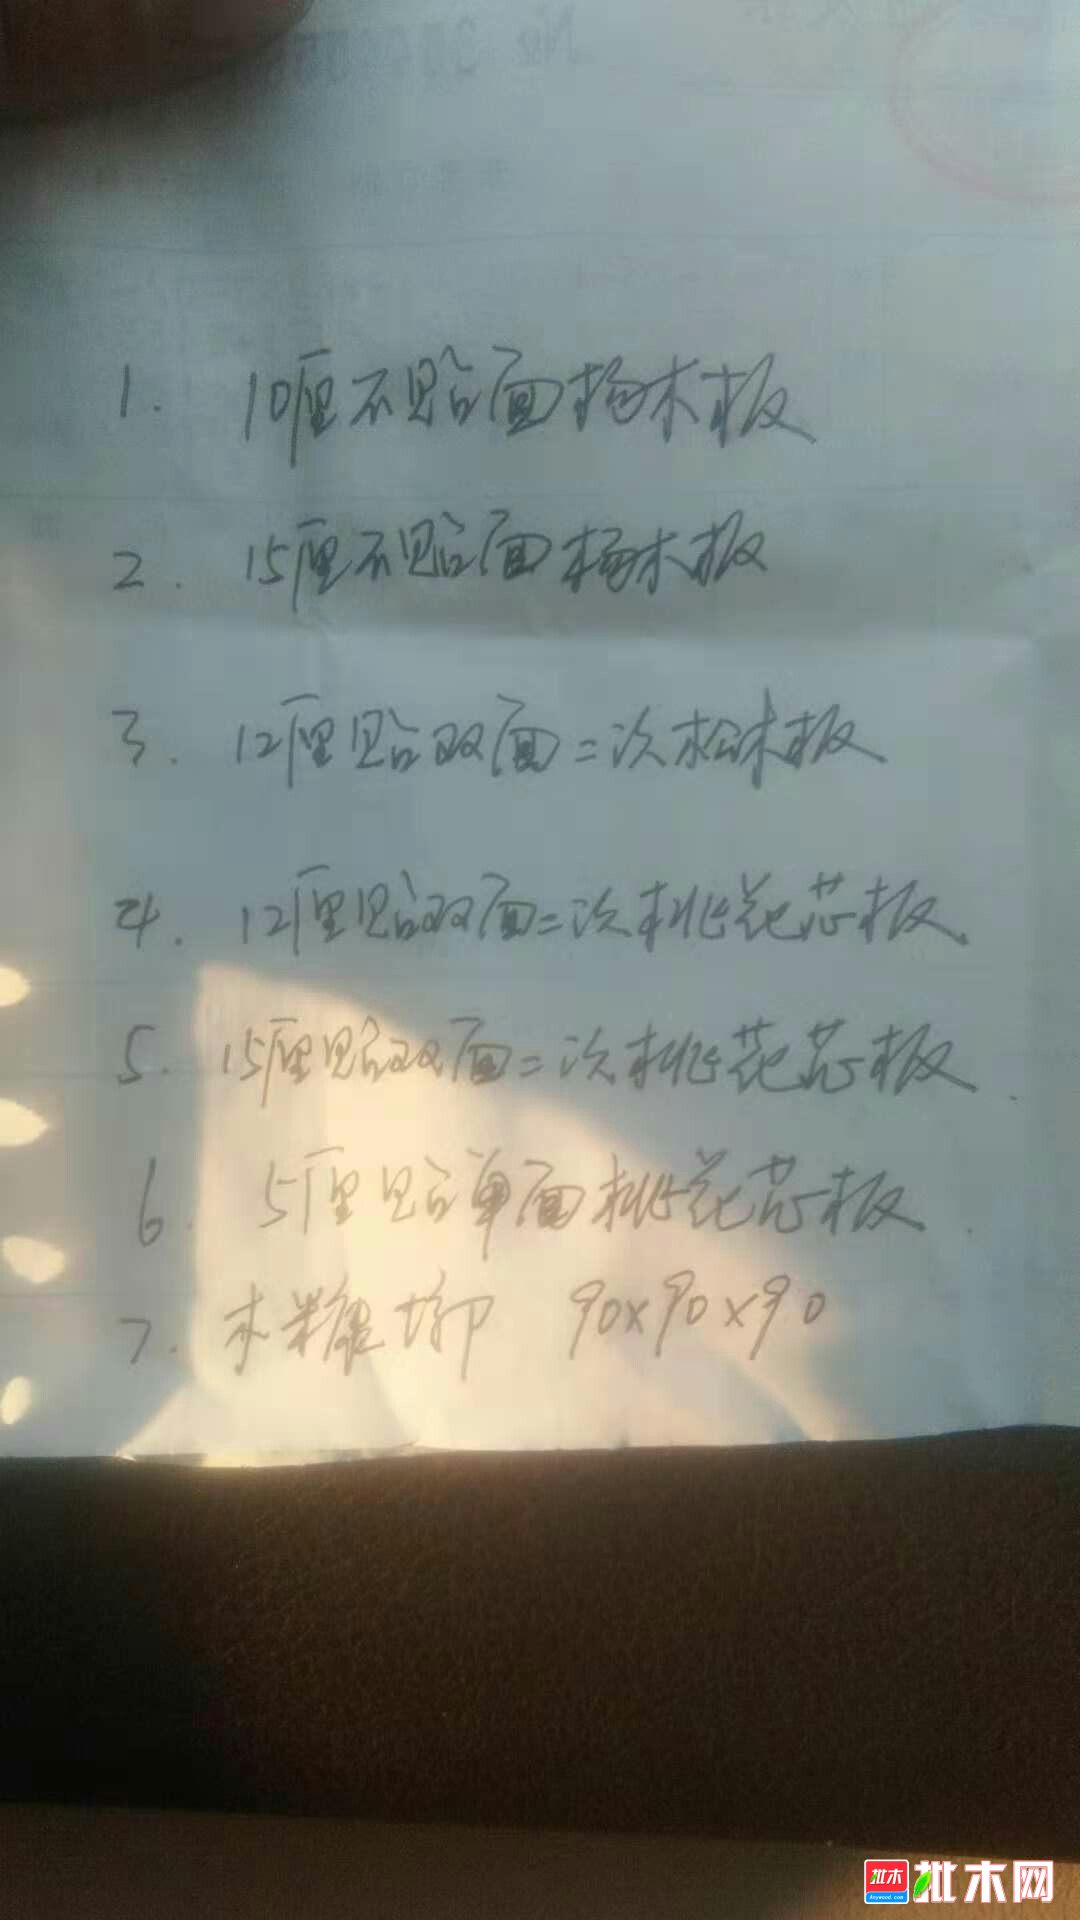 1. 10厘不贴面杨木板
2. 15厘不贴面杨木板
3. 12厘贴双面二次松木板
4. 12厘贴双面二次桃花芯板
5. 15厘贴双面二次桃花芯板
6. 5厘贴单面桃花芯板
7. 木糠 90×90×90
批木
Anywood.com
批木网